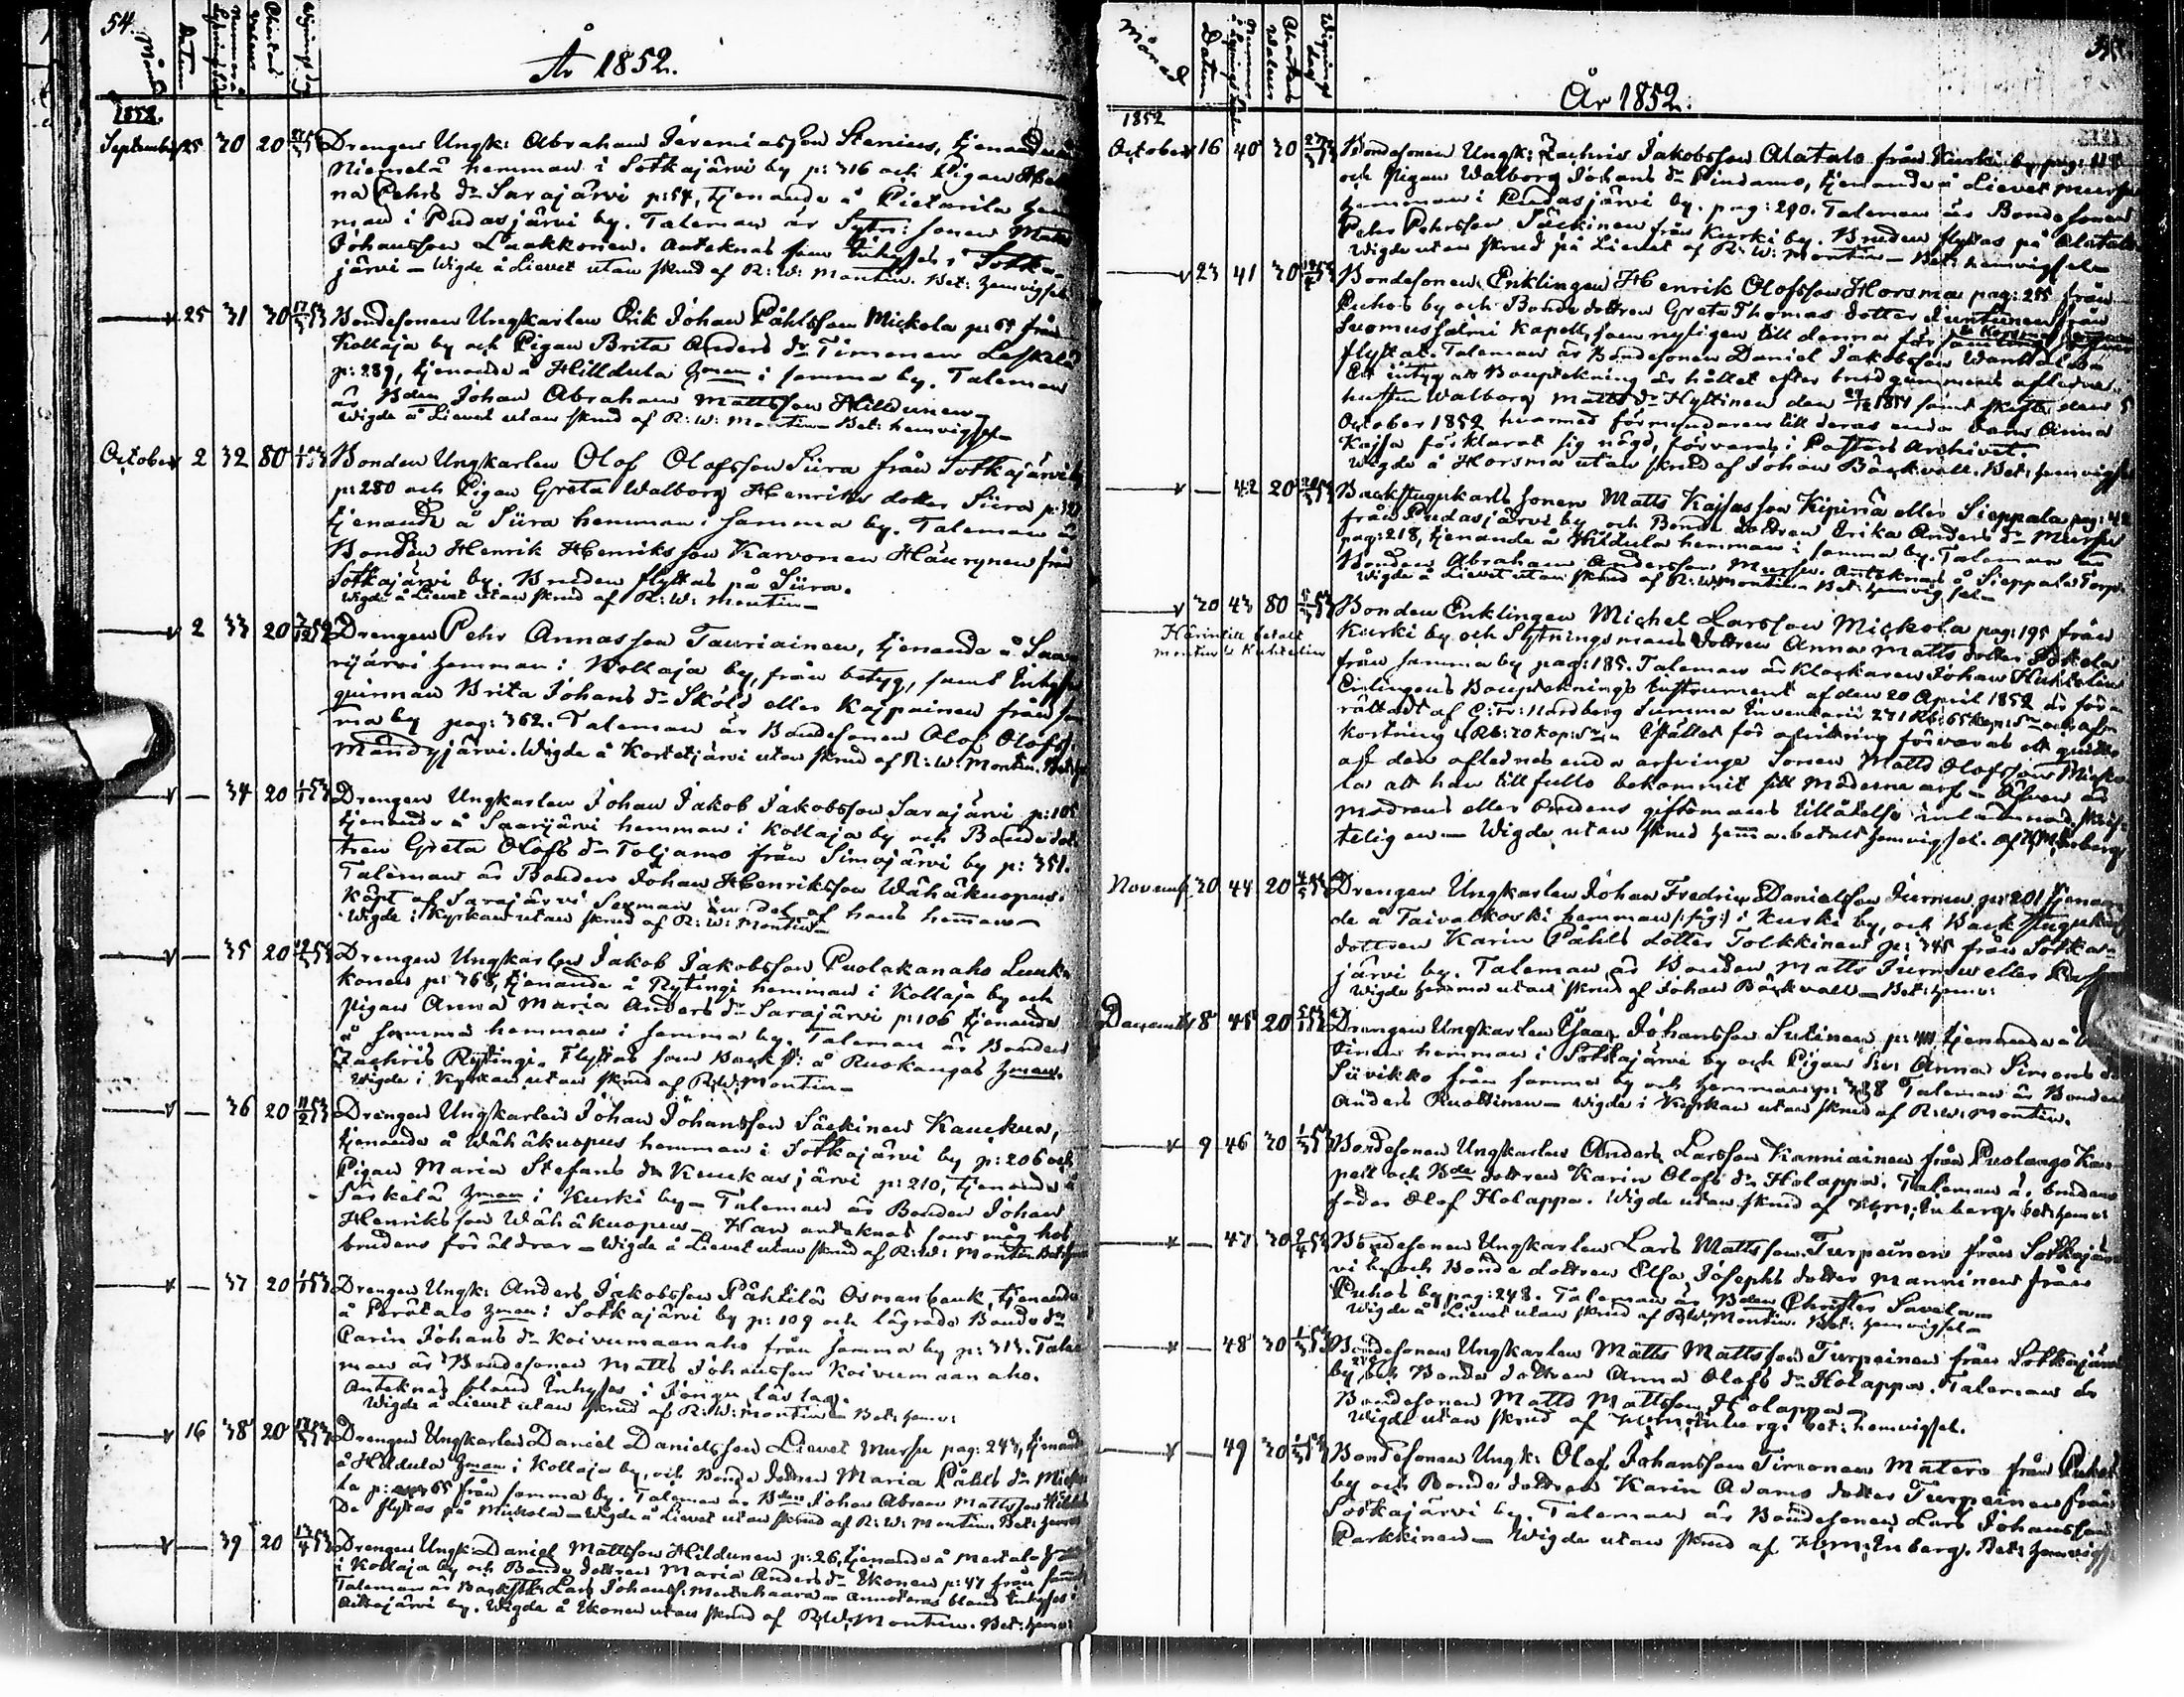 54.
Månad
Datum
År 1852.
1852.
September 25 30 20 Drengen Ungk: Abraham Jeremiasson Stenius, tjenande å
Niemelä hemman i Sotkajärvi by p: 316 och Pigan
na Pehrs dr Sarajärvi p: 54, tjenande å Pietarila
man i Pudasjärvi by. Taleman är Sytn: sonen Matts
Johansson Laakkonen. Anteknas som Inhyses i Sotka-
järvi – Wigde å Lievet utan skrud af R: W: Montin. Bet: hemvigsel
25 31 30 Bondesonen Ungkarlen Erik Johan Påhlsson Mickola p: 67 från
Kollaja by och Pigan Brita Anders dr Timonen
p: 289, tjenande å Hilldula hman i samma by. Taleman
är Bden Johan Abraham Mattsson Hilldunen –
Wigde å Lievet utan skrud af R: W: Montin – Bet: hemvigsel –
October 2 32 80 Bonden Ungkarlen Olof Olofsson Siira från Sotkajärvi
p: 280 och Pigan Greta Walborg Henriks dotter Siira
tjenande å Siira hemman i samma by. Taleman är
Bonden Henrik Henriksson Karvonen Häurynen från
Sotkajärvi by. Bruden flyttas på Siira.
Wigde å Lievet utan skrud af R: W: Montin –
2 33 20 Drengen Pehr Annasson Tauriainen, tjenande å Saa-
rijärvi hemman i Kollaja by, från betyg, samt Inhyses
quinnan Brita Johans dr Sköld eller Kajpainen från sam
ma by pag: 362. Taleman är Bondesonen Olof Olofs
Mändyjärvi. Wigde å Kortetjärvi utan skrud af R: W: Montin.
— 34 20 Drengen Ungkarlen Johan Jakob Jakobsson Sarajärvi p: 105
tjenande å Saarijärvi hemman i Kollaja by och Bonde dot
tren Greta Olofs dr Toljamo från Simojärvi by p: 351.
Taleman är Bonden Johan Henriksson Wähäkuopus.
Köpt af Sarajärvi Sexman en del af hans hemman –
Wigde i Kyrkan utan skrud af R: W: Montin –
— 35 20 Drengen Ungkarlen Jakob Jakobsson Puolakanaho Luuk-
konen p: 368, tjenande å Rytingi hemman i Kollaja by och
pigan Anna Maria Anders dr Sarajärvi p: 106 tjenande
å samma hemman i samma by. Taleman är Bonden
Zachris Rytingi. Flyttas som Backst: å Ruokangas hman.
Wigde i Kyrkan utan skrud af R: W: Montin –
— 36 20 Drengen Ungkarlen Johan Johansson Säckinen Kauckua,
tjenande å Wähäkuopus hemman i Sotkajärvi by p: 206 och
Pigan Maria Stefans dr Kuukasjärvi p: 210, tjenande å
Särkelä hman i Kurki by – Taleman är Bonden Johan
Henriksson Wähäkuopus – Han anteknas som måg hos
brudens föräldrar – Wigde å Lievet utan skrud af R: W: Montin
— 37 20 Drengen Ungk: Anders Jakobsson Påhtilä Osmanbeuk, tjenande
å Perätalo hman i Sotkajärvi by p: 109 och lägrade Bonde dr
Carin Johans dr Koivumaanaho från samma by p: 313. Tale
man är Bondesonen Matts Johansson Koivumaanaho.
Anteknas bland Inhyses i Jongu läslag.
Wigde å Lievet utan skrud af R: W: Montin – Bet: hemv:
16 38 20 Drengen Ungkarlen Daniel Danielsson Lievet Mursu pag: 243, tjenande
å Hildula hman i Kollaja by, och Bonde dottren Maria Påhls dr Micko
la p: 65 från samma by. Taleman är Bden Johan Abram Mattsson
De flyttas på Mickola – Wigde å Lievet utan skrud af R: W: Montin. Bet:
— 39 20 Drengen Ungk: Daniel Mattsson Hildunen p: 26, tjenande å
i Kollaja by och Bonde dottren Maria Anders dr Ekonen p: 47 från samma
Taleman är Lars Johans: – Annoteras bland Inhyses i
Aittojärvi by. Wigde å Ekonen utan skrud af R: W: Montin. Bet: hemv:
Månad
Datum
Wignings dag
År 1852.
1852
October 16 40 30 Bondesonen Ungk: Zachris Jakobsson Alatalo från Kurki by pag:
och Pigan Walborg Johans dr Pindamo, tjenande å Lievet Mursu
hemman i Pudasjärvi by. pag: 290. Taleman är Bondesonen
Pehr Pehrsson Säckinen från Kurki by. Bruden flyttas på Alatalo
Wigde utan skrud på Lievet af R: W: Montin – Bet: hemvigsel –
23 41 30 Bondesonen Enklingen Henrik Olofsson Horsma pag: 295 från
Puhos by och Bonde dottren Greta Thomas dotter Juntunen från
Suomussalmi Kapell, som nyligen till denna för
flyttat. Taleman är Bondesonen Daniel Jakobsson
Ett intyg att Bouptekning är hållet efter brudgummens aflidna
hustru Walborg Matts dr Hyttinen den 1851 samt skifte den 5
October 1852 hvarmed förmyndaren till deras enda barn Anna
Kajsa förklarat sig nögd, förvaras i Pastors Archivet.
Wigde å Horsma utan skrud af Johan Bäckvall. Bet: hemvigsel
— 42 20 Backstugukarls sonen Matts Kajsasson Kipinä eller Sieppala pag:
från Pudasjärvi by och Bonde dottren Erika Anders dr Mursu
pag: 218, tjenande å Hildula hemman i samma by. Taleman är
Bonden Abraham Andersson Mursu. Anteknas å Sieppala Torp.
Wigde å Lievet utan skrud af R: W: Montin – Bet: hemvigsel –
30 43 80 Bonden Enklingen Michel Larsson Mickola pag: 195 från
Härintill betalt
Montin & Huktelin
Kurki by och Sytningsmans dottren Anna Matts dotter Jokela
från samma by pag: 185. Taleman är Klockaren Johan Huktelin
Enklingens Boupteknings Instrument af den 20 April 1852 är förä
rättadt af C: Fr: Nordberg Summa Inventarii 271 Rb: 65 kop: Sr och af-
kortning Rb: 20 kop: Sr: – Istället för afvittring förvaras ett quitto
af den aflednes enda arfvinge Sonen Matts Olofsson Micko
la att han tillfullo bekommit sitt Möderne arf – Äfven är
modrens eller brudens giftomans tillåtelse inlämnad, skrif-
telig en – Wigde utan skrud hemma. betalt hemvigsel. af H: M: Enberg
Novemb 20 44 20 Drengen Ungkarlen Johan Fredric Danielsson Jurmu p: 201 tjenan
de å Taivalkoski hemman /: såg :/ i Kurki by, och Backstugukarls
dottren Karin Påhls dotter Tolkkinen p: 345 från Sotka-
järvi by. Taleman är Bonden Matts Jurmu eller
Wigde hemma utan skrud af Johan Bäckvall – Bet: hemv:
Decemb 8 45 20 Drengen Ungkarlen Isaac Johansson Sutinen p: tjenande å
hemman i Sotkajärvi by och Pigan Anna Simons dr
Siivikko från samma by och hemman p: 388 Taleman är Bonden
Anders Ruottinen – Wigde i Kyrkan utan skrud af R: W: Montin.
9 46 30 Bondesonen Ungkarlen Anders Larsson Kanniainen från Puolango Kap
pell och Bde dottren Karin Olofs dr Holappa. Taleman är brudens
fader Olof Holappa. Wigde utan skrud af H: M: Enberg. bet: hemv:
— 47 30 Bondesonen Ungkarlen Lars Mattsson Turpeinen från Sotkajär
vi by och Bonde dottren Elsa Josephs dotter Manninen från
Puhos by pag: 248. Taleman är Bden Christer Savela –
Wigde å Lievet utan skrud af R: W: Montin. Bet: hemvigsel –
— 48 30 Bondesonen Ungkarlen Matts Mattsson Turpeinen från Sotkajärvi
by, och Bonde dottren Anna Olofs dr Holappa. Taleman är
Bondesonen Matts Mattsson Holappa –
Wigde utan skrud af H: M: Enberg. bet: hemvigsel.
— 49 30 Bondesonen Ungk: Olof Johansson Timonen Matero från Puhos
by och Bonde dottren Karin Adams dotter Turpeinen från
Sotkajärvi by. Taleman är Bondesonen Lars Johansson
Parkkinen – Wigde utan skrud af H: M: Enberg. Bet: hemvigs: